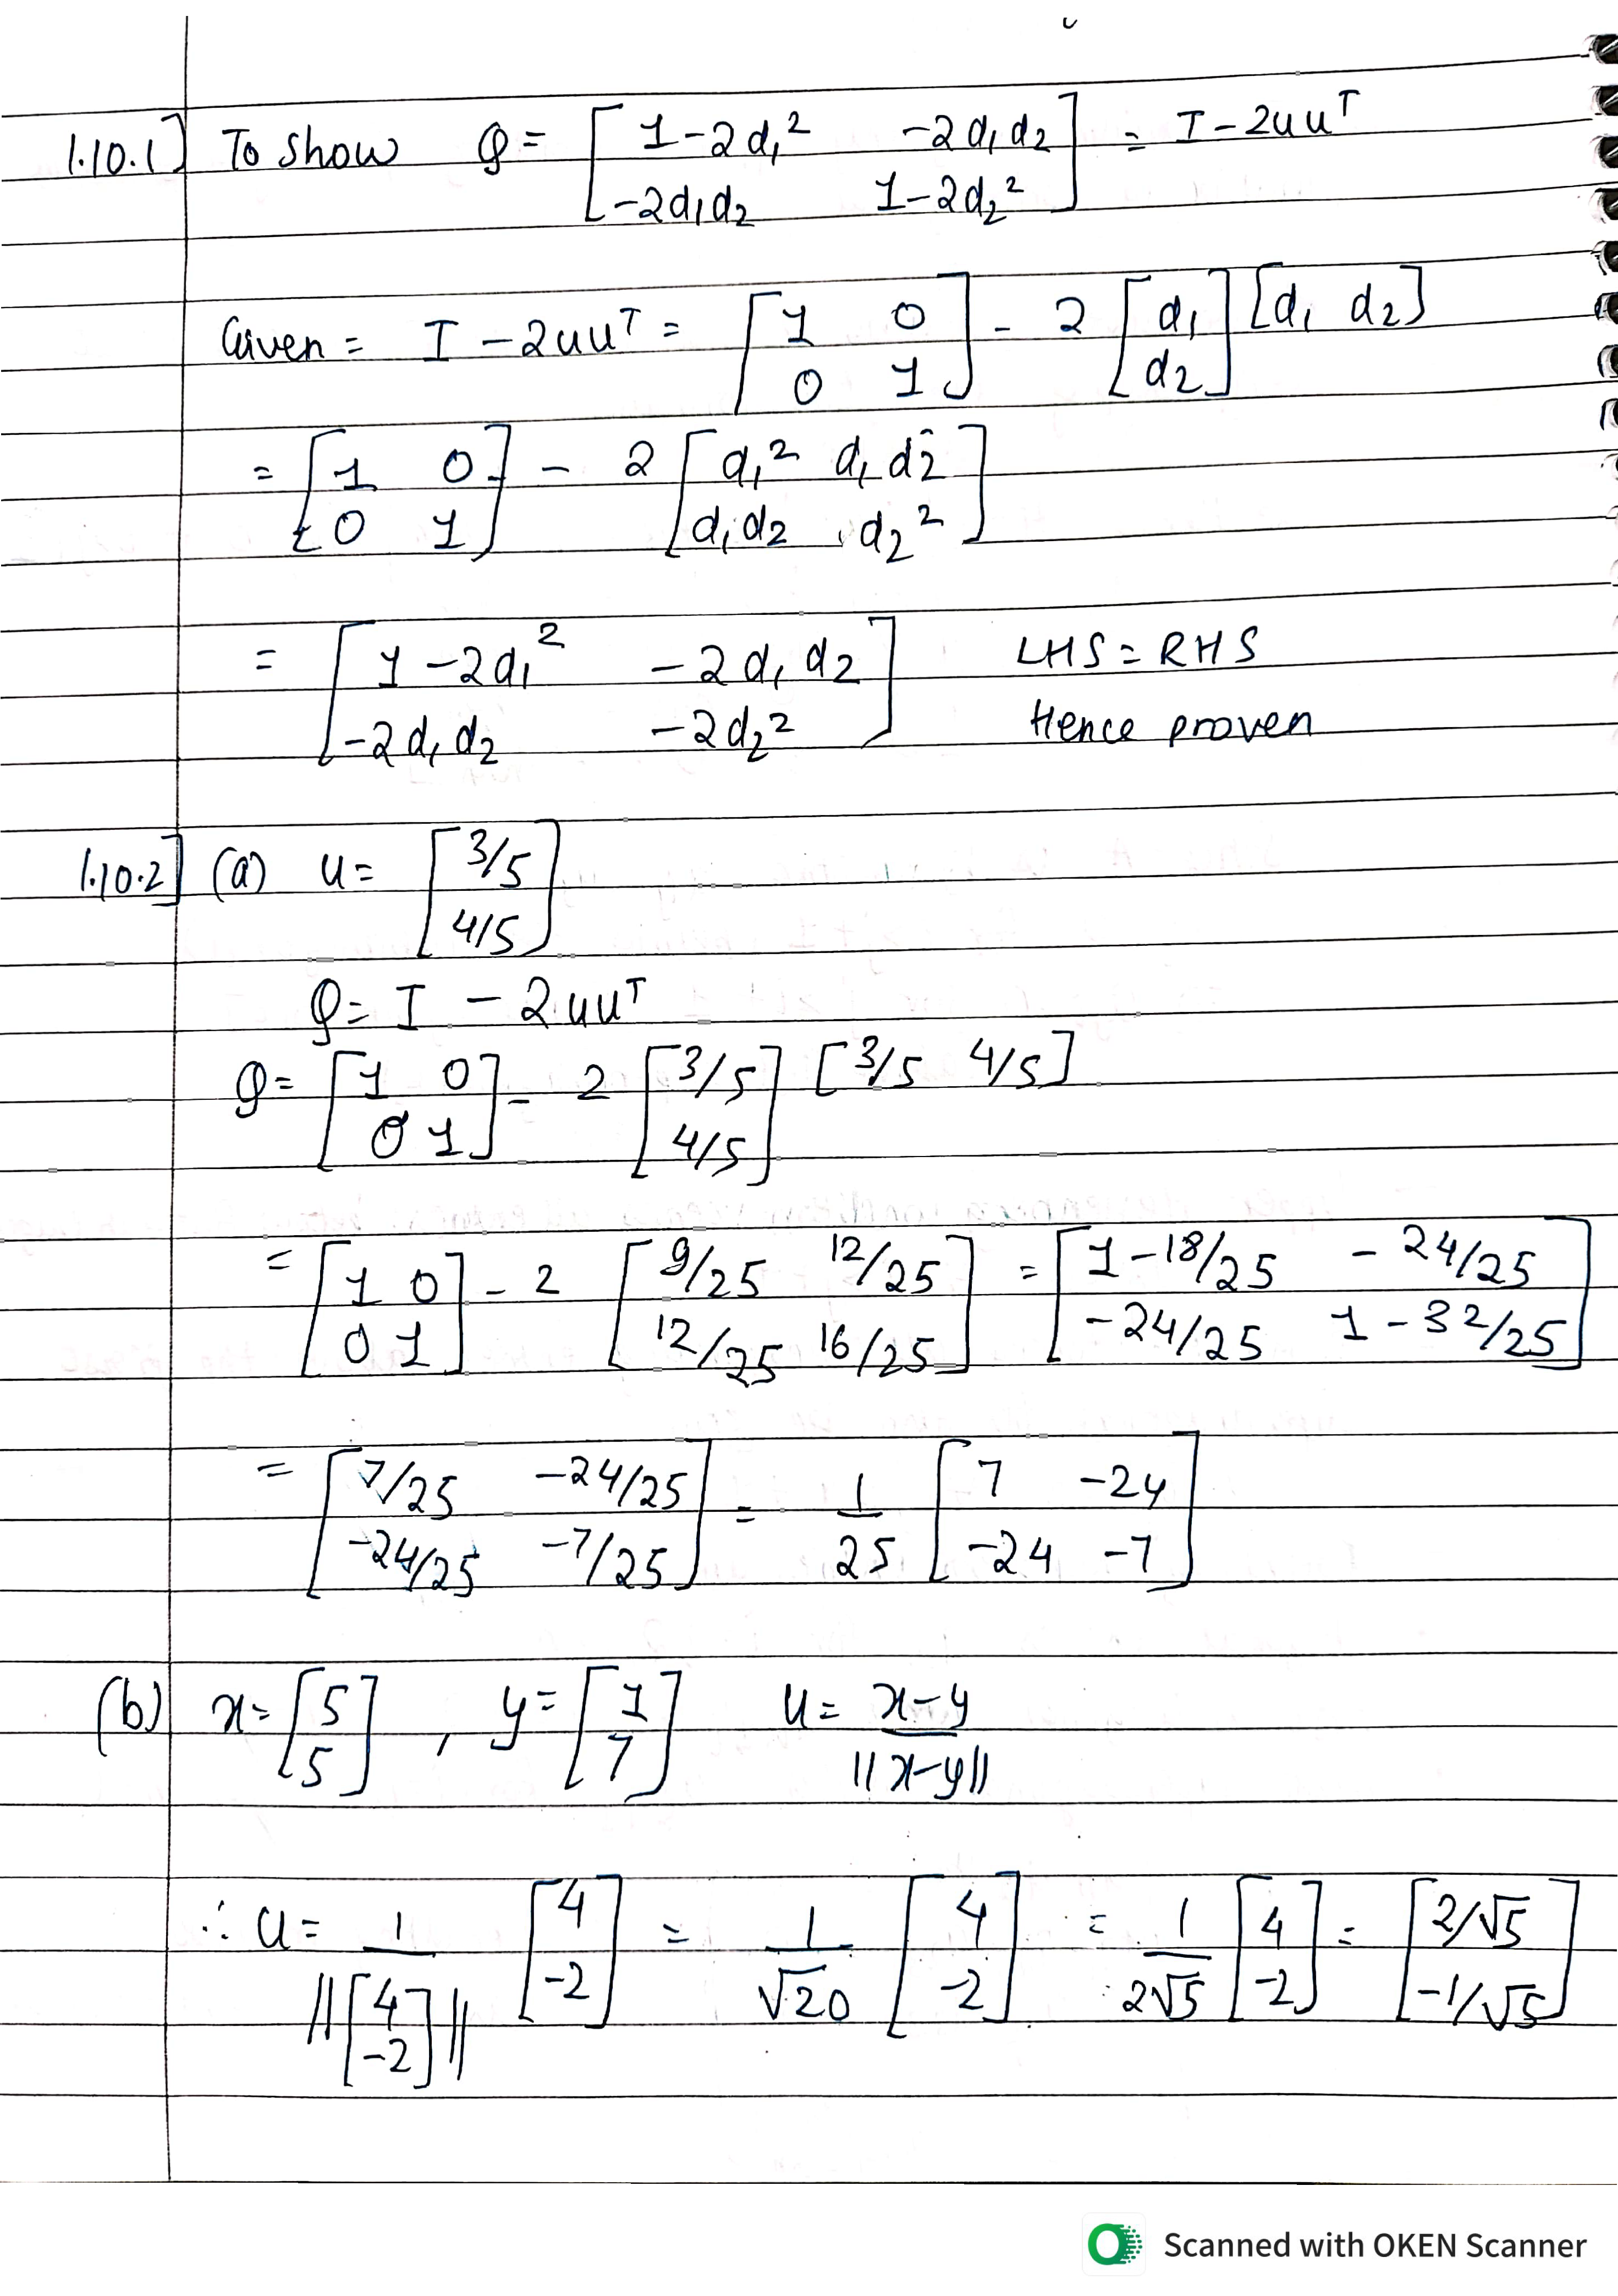 1.10.1] To show Q = [ 1-2d₁² -2d₁d₂ ; -2d₁d₂ 1-2d₂² ] = I - 2uuᵀ
Given = I - 2uuᵀ = [ 1 0 ; 0 1 ] - 2 [ d₁ ; d₂ ] [ d₁ d₂ ]
= [ 1 0 ; 0 1 ] - 2 [ d₁² d₁d₂ ; d₁d₂ d₂² ]
= [ 1-2d₁² -2d₁d₂ ; -2d₁d₂ -2d₂² ] LHS = RHS
Hence proven
1.10.2] (a) u = [ 3/5 ; 4/5 ]
Q = I - 2uuᵀ
Q = [ 1 0 ; 0 1 ] - 2 [ 3/5 ; 4/5 ] [ 3/5 4/5 ]
= [ 1 0 ; 0 1 ] - 2 [ 9/25 12/25 ; 12/25 16/25 ] = [ 1-18/25 -24/25 ; -24/25 1-32/25 ]
= [ 7/25 -24/25 ; -24/25 -7/25 ] = 1/25 [ 7 -24 ; -24 -7 ]
(b) x = [ 5 ; 5 ] , y = [ 1 ; 7 ] u = x-y / ||x-y||
∴ u = 1 / ||[ 4 ; -2 ]|| [ 4 ; -2 ] = 1/√20 [ 4 ; -2 ] = 1/2√5 [ 4 ; -2 ] = [ 2/√5 ; -1/√5 ]
Scanned with OKEN Scanner